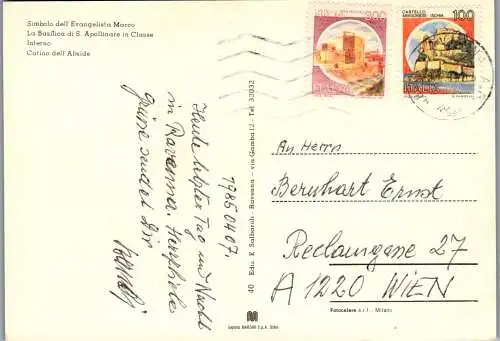 Simbolo dell'Evangelista Marco
La Basilica di S. Apollinare in Classe
Interno
Catino dell'Abside
CASTELLO
ISCHIA
100
ITALIA
1985 04 07
Heute letzter Tag und Nacht
in Ravenna. Herzliche
Grüsse sendet Dir
40 Ediz. E Salbaroli - Ravenna - via Gamba 12 - Tel. 32032
An Herrn
Bernhart Ernst
Reclamgasse 27
A 1220 WIEN
Fotocolore s r l - Milano